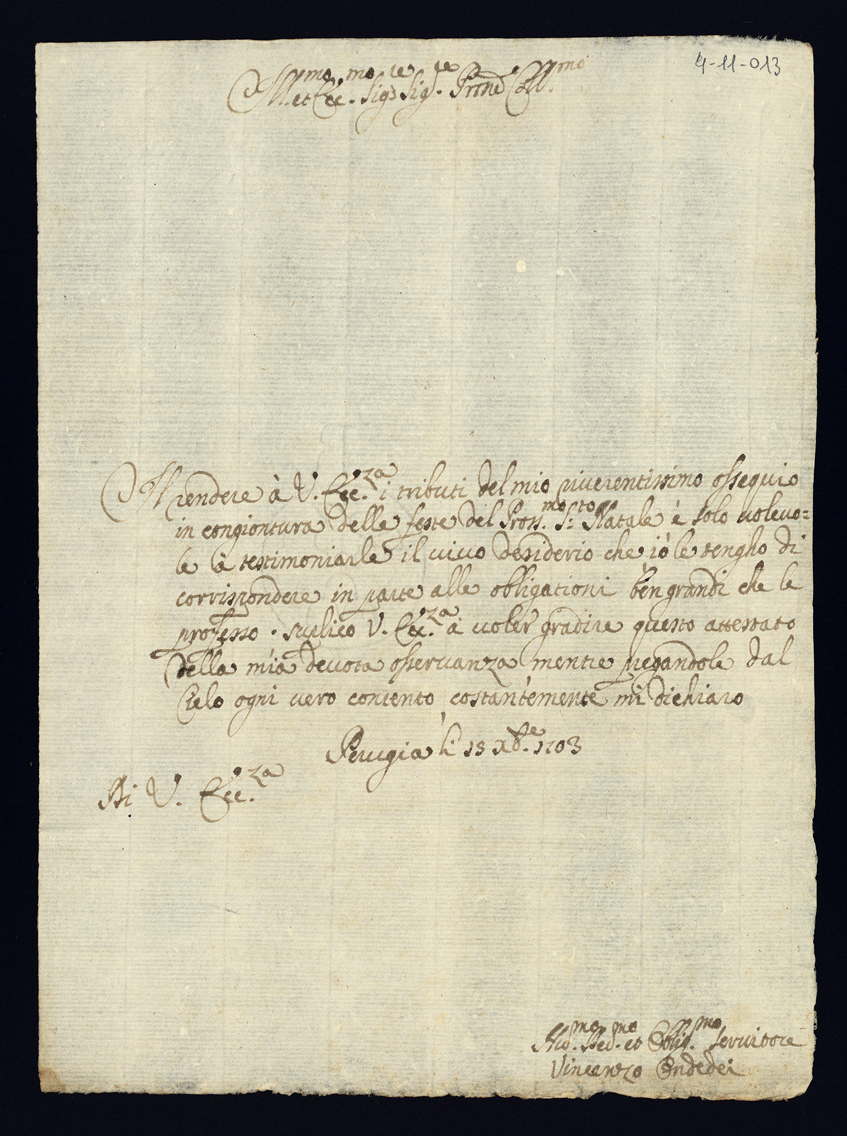 4-11-013
Ill.mo et Ecc.mo Sig.re Sig.re Prone Coll.mo
Il rendere à V. Ecc.za i tributi del mio riverentissimo ossequio
in congiontura delle feste del Pross.mo S.to Natale è solo volevo=
le à testimoniarle il vivo desiderio che iò le tengho di
corrispondere in parte alle obligationi ben grandi che le
professo. suplico V. Ecc.za à voler gradire questo attestato
della mia devota osservanza mentre pregandole dal
Cielo ogni vero contento costantemente mi dichiaro
Perugia li 15 Xb.re 1703
Di V. Ecc.za
Hu.mo Dev.mo et Oblig.mo servitore
Vincenzo Ondedei